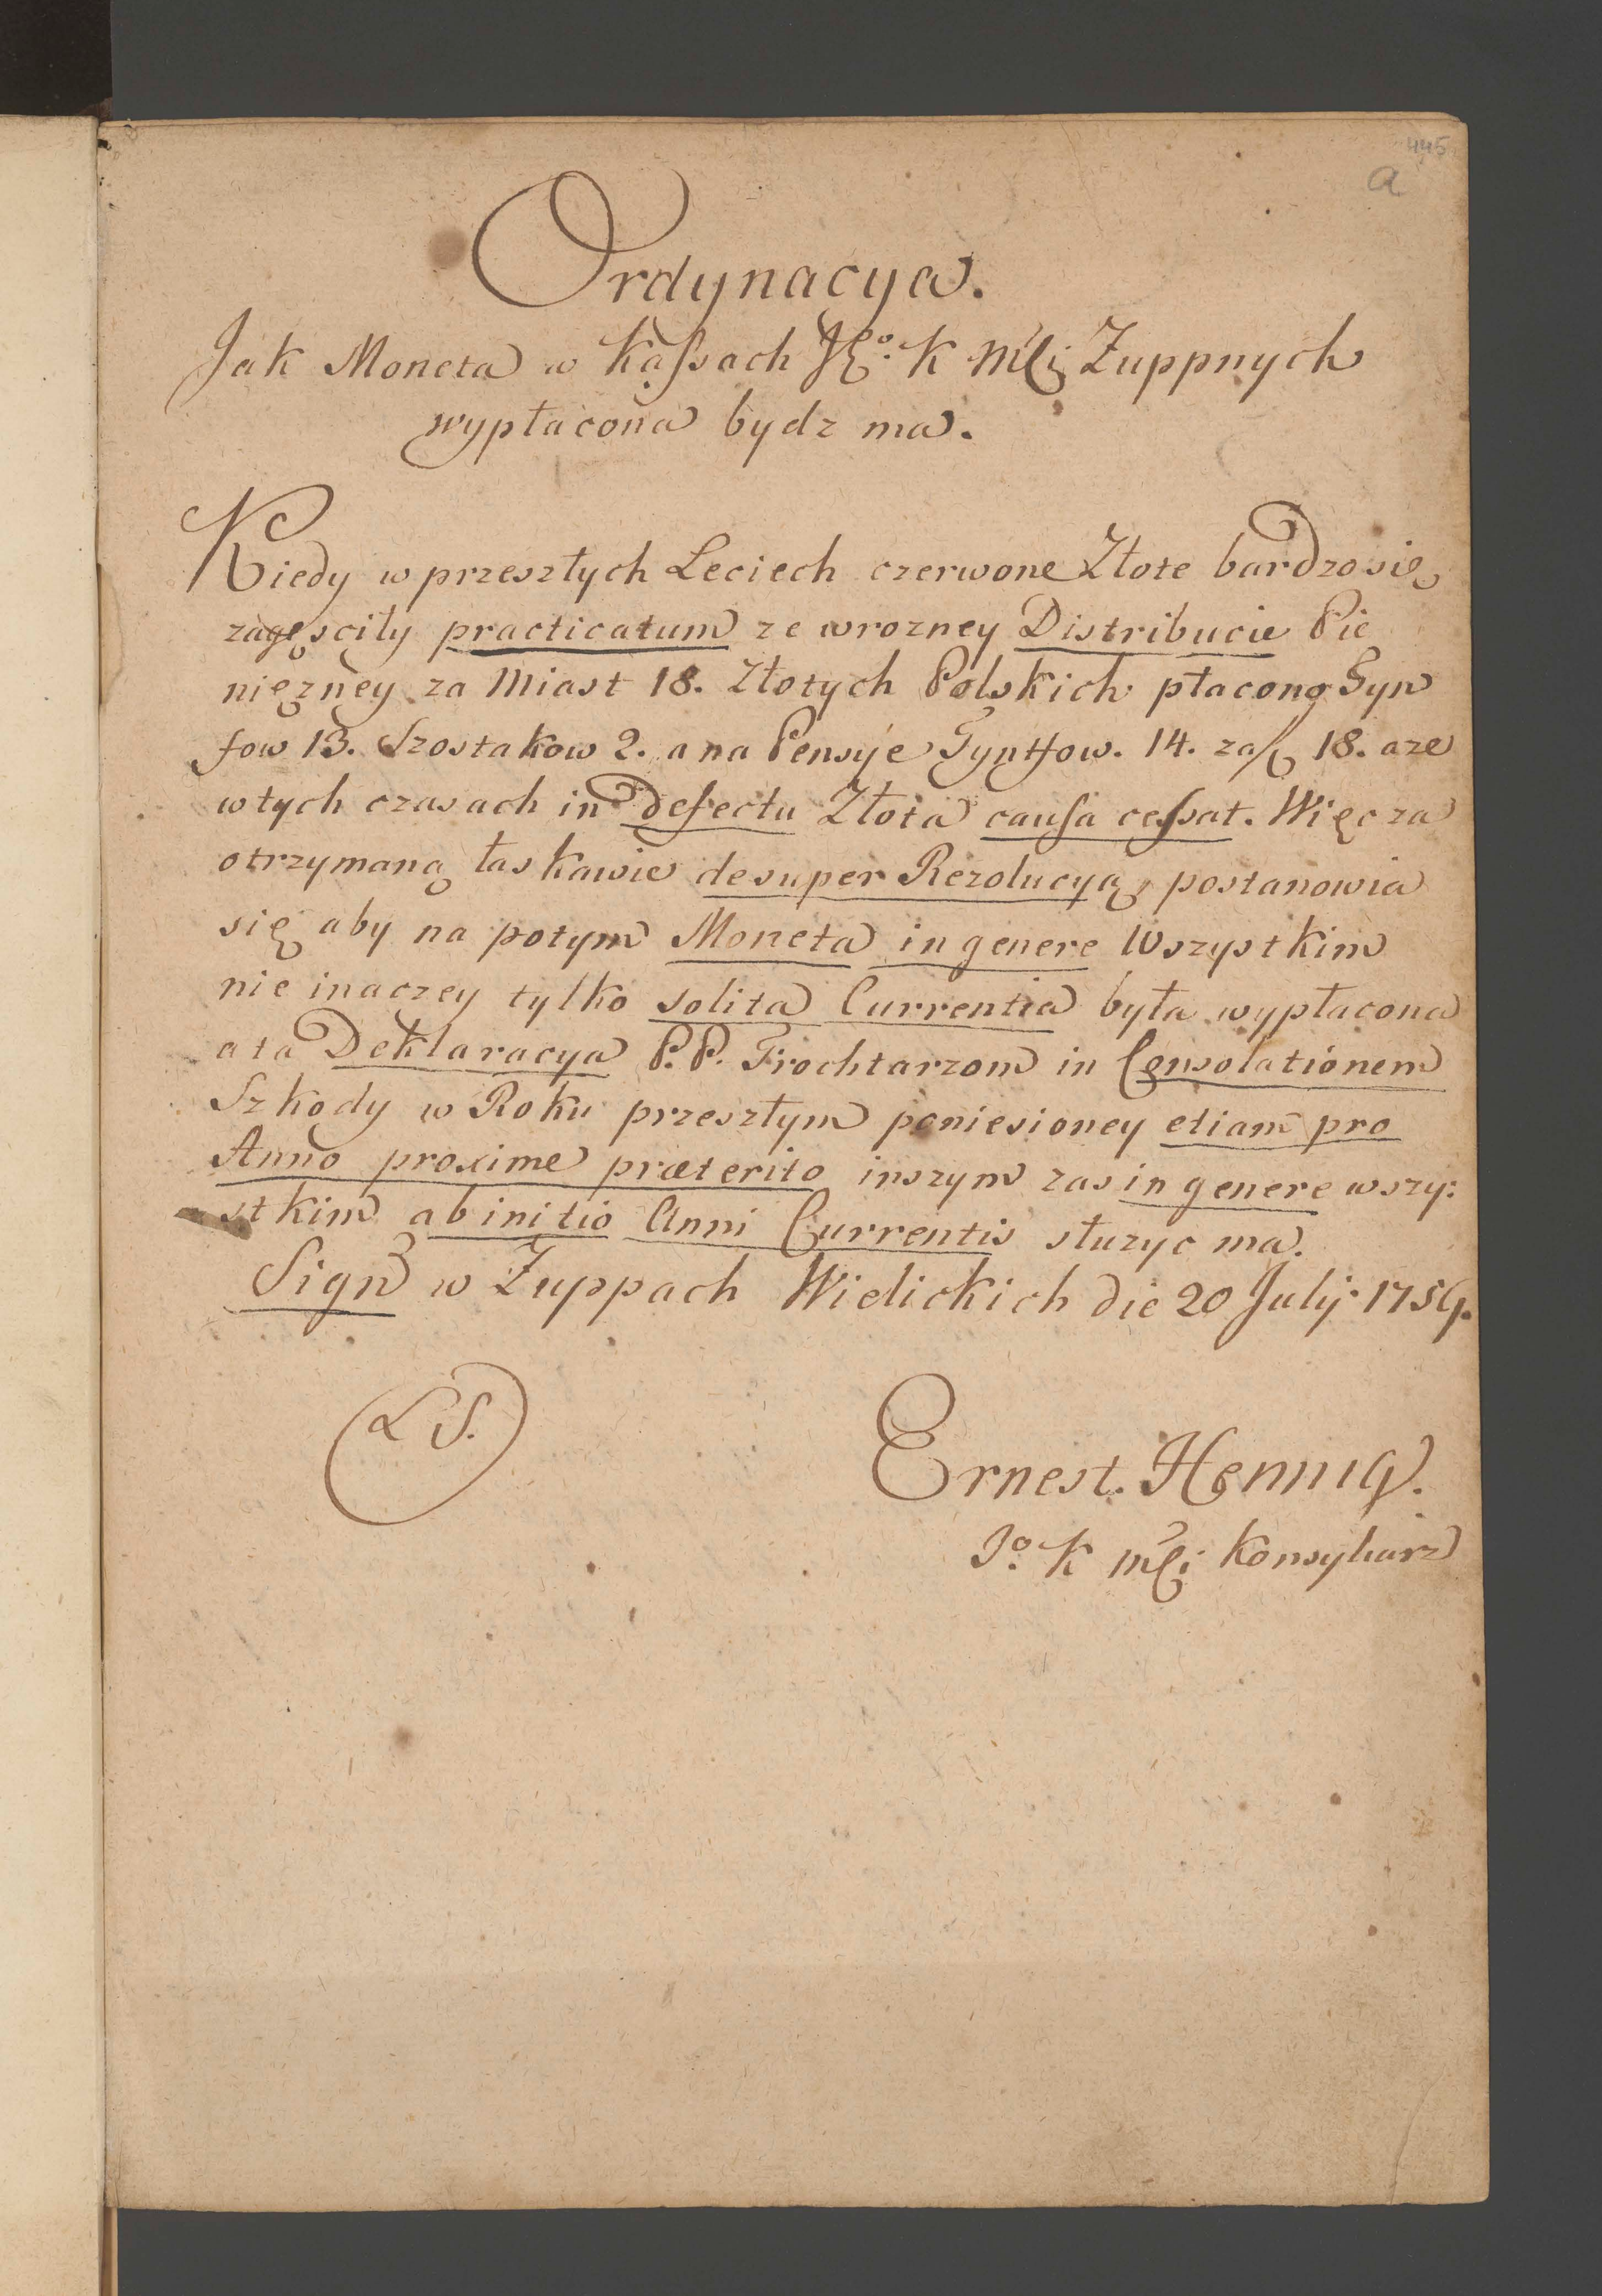 445
a
Ordynacya.
Jak Moneta w Kassach JEº. K Mci Zuppnych
wypłacona bydz ma.
Kiedy w przeszłych Leciech czerwone Złote bardzo się
zagęsciły practicatum ze wrozney Distribucie Pie
nięzney za Miast 18. Złotych Polskich płacono Tyn
fow 13. Szostakow 2. a na Pensye Tynffow. 14. za 18. aze
w tych czasach in defectu Złota causa cessat. Więc za
otrzymaną łaskawie desuper Rezolucyą, postanowia
się aby na potym Moneta in genere Wszystkim
nie inaczey tylko solita Currentia była wypłacona
a ta Deklaracya P.P. Frochtarzom in Consolationem
Szkody w Roku przeszłym poniesioney etiam pro
Anno proxime præterito inszym zas in genere wszy:
stkim ab initio Anni Currentis słuzyc ma.
Sign w Zuppach Wielickich die 20 July
LS.
Ernest. Hennig.
Jº. K Mci Konsyliarz